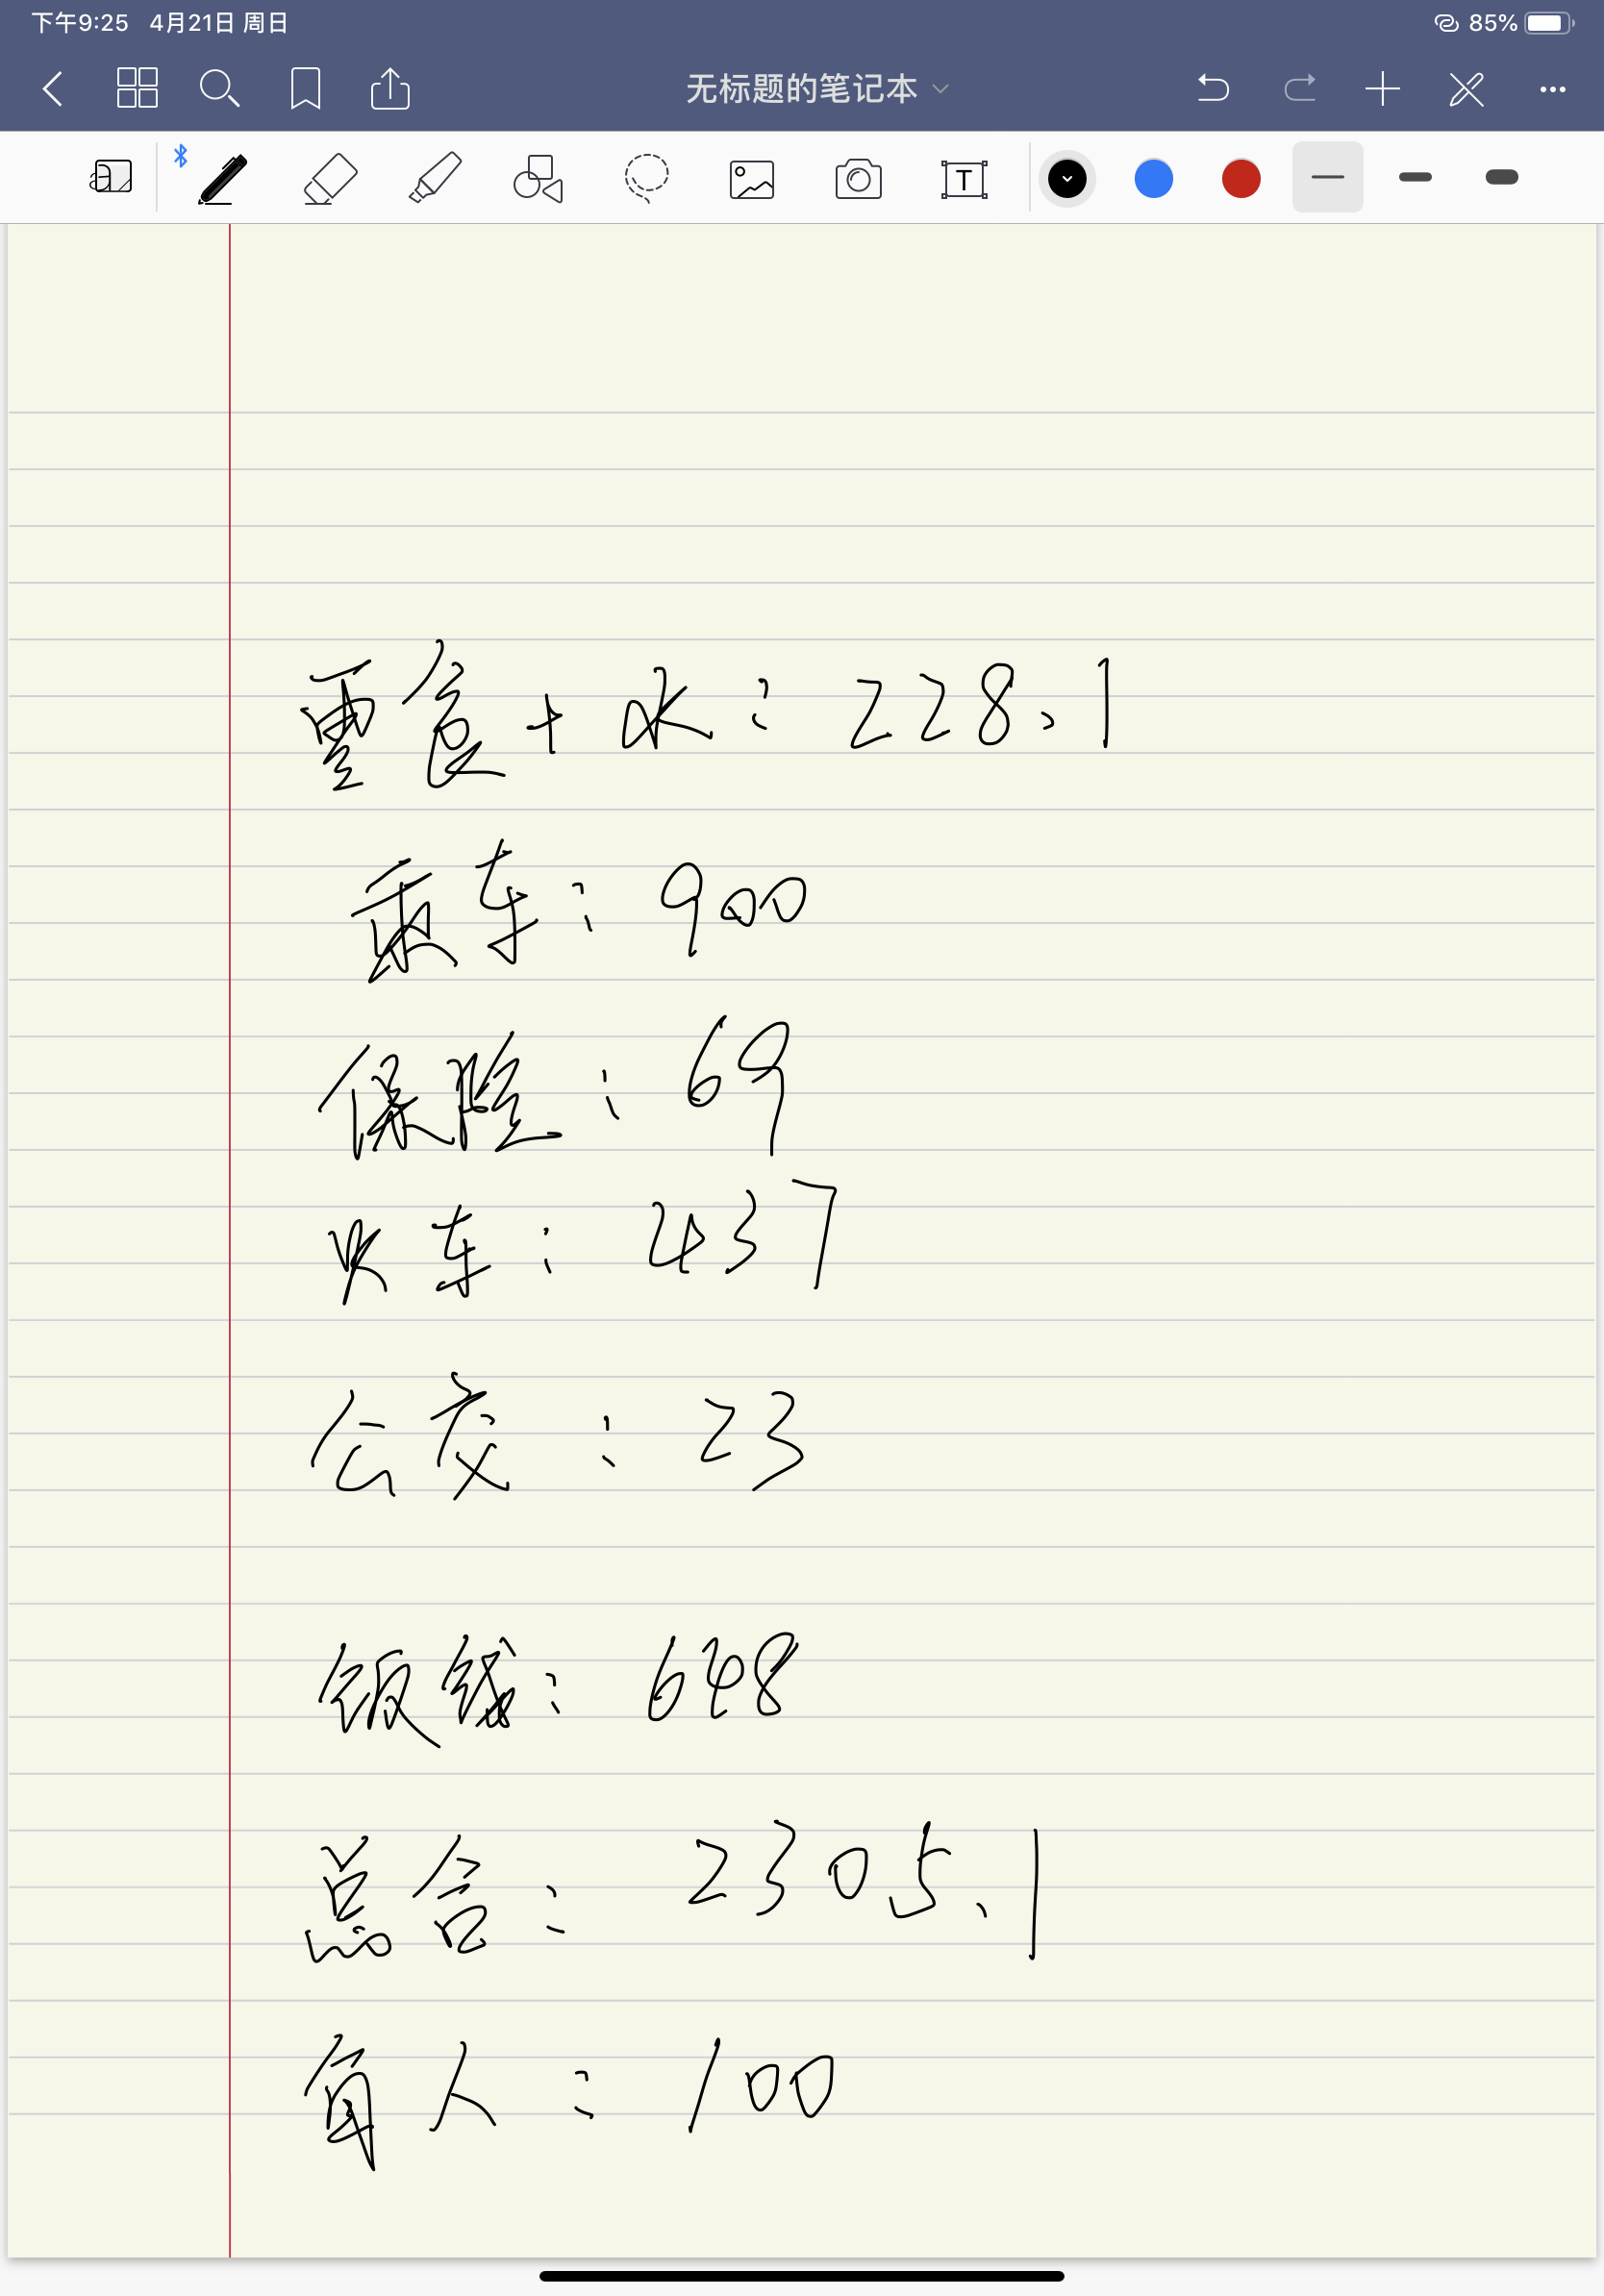 下午9:25 4月21日 周日 85%
无标题的笔记本
T
零食+水：228.1
乘车：900
保险：69
火车：437
公交：23
饭钱：648
总合：2305.1
每人：100